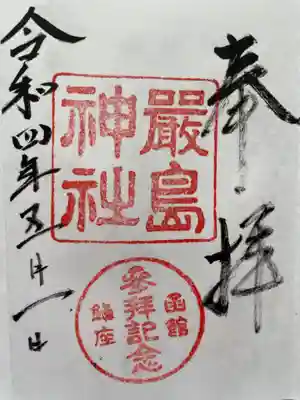 奉拝
嚴島
神社
函館
参拝記念
鎮座
令和四年五月一日